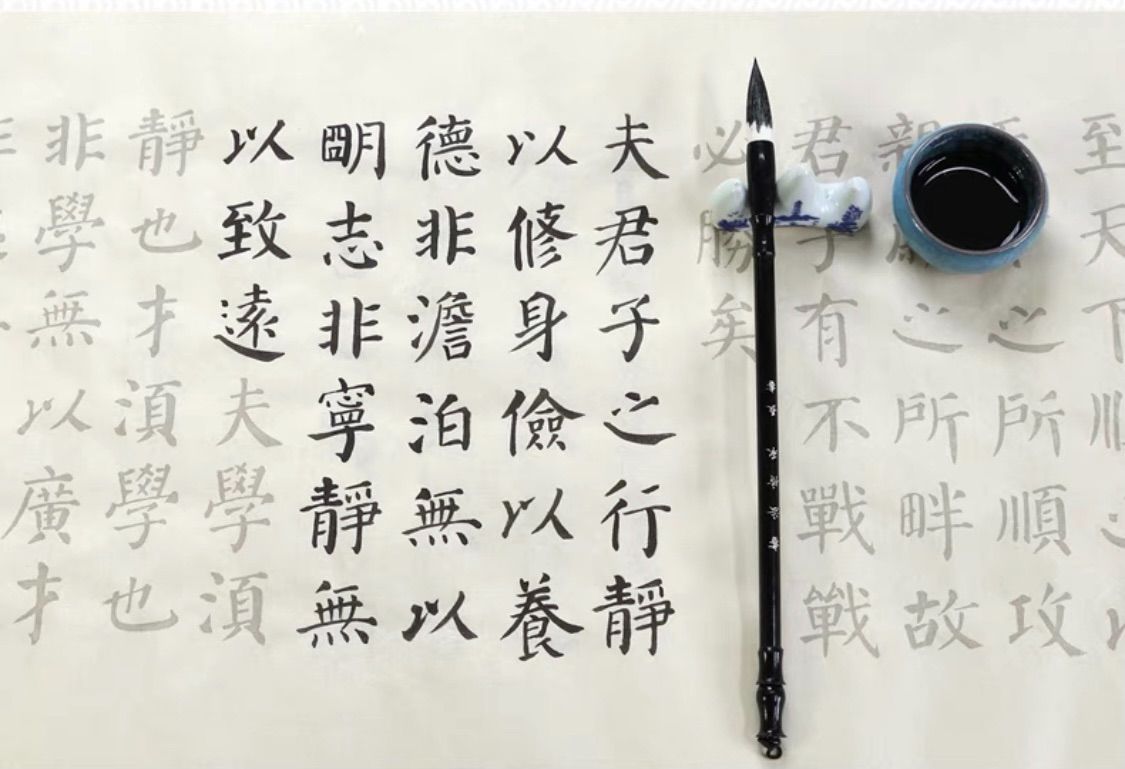 至天下順
之所順攻
親之所畔故
君子有不戰戰
必勝矣
夫君子之行靜
以修身儉以養
德非澹泊無以
朙志非寧靜無
以致遠夫學湏
靜也才湏學也
非學無以廣才